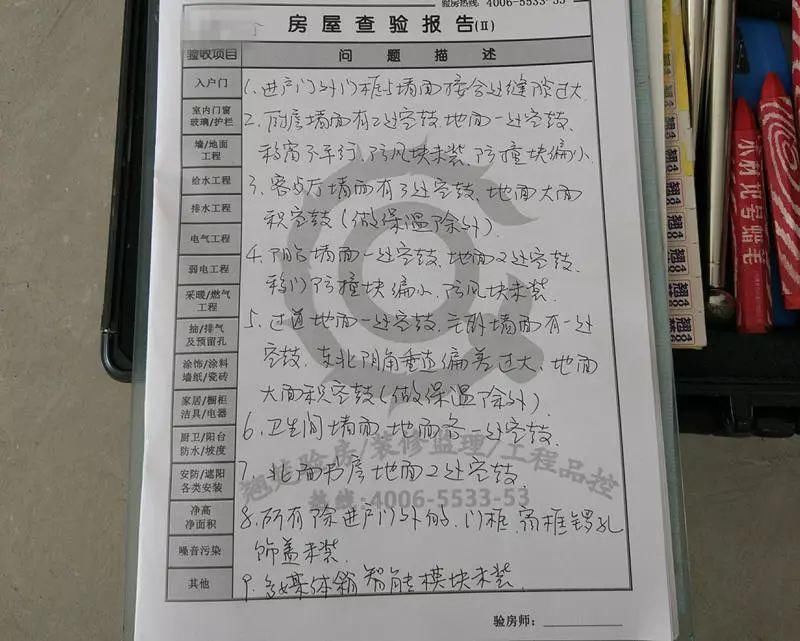 验房热线: 4006-5533-53
房屋查验报告(II)
验收项目
问题描述
入户门
室内门窗
玻璃/护栏
墙/地面
工程
给水工程
排水工程
电气工程
弱电工程
采暖/燃气
工程
抽/排气
及预留孔
涂饰/涂料
墙纸/瓷砖
家居/橱柜
洁具/电器
厨卫/阳台
防水/坡度
安防/遮阳
各类安装
净高
净面积
噪音污染
其他
1、进户门外门框与墙面接合处缝隙过大
2、厨房墙面有2处空鼓、地面一处空鼓、
移窗不平行、防风块未装、防撞块偏小
3、客餐厅墙面有3处空鼓、地面大面
积空鼓(做保温除外)
4、阳台墙面一处空鼓、地面2处空鼓、
移门防撞块偏小、防风块未装
5、过道地面一处空鼓、主卧墙面有一处
空鼓、东北阴角垂直偏差过大、地面
大面积空鼓(做保温除外)
6、卫生间墙面、地面各一处空鼓
7、北面书房地面2处空鼓
8、所有除进户门以外的、门框、窗框锣孔
饰盖未装
9、多媒体箱智能模块未装
验房/装修监理/工程品控
热线:4006-5533-53
验房师:
小林记号蜡笔